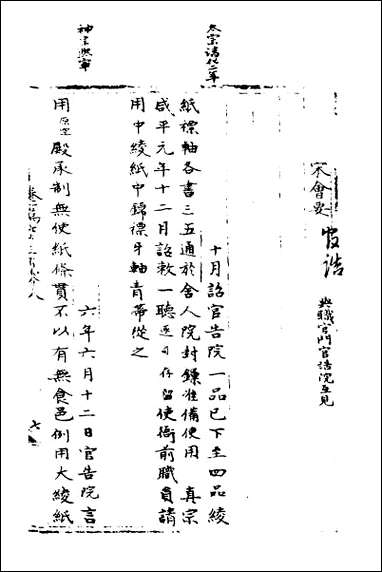 宋會要
官誥
與職官門官誥院互見
太宗淳化二年
十月詔官告院一品已下至四品綾
紙褾軸各書三五通於舍人院封鏁准備使用　真宗
咸平元年十二月詔敕一聽逐司存留使衙前職員請
用中綾紙中錦褾牙軸青帶從之
神宗熙寧
六年六月十二日官告院言
用殿承制無使紙條貫不以有無食邑例用大綾紙
七